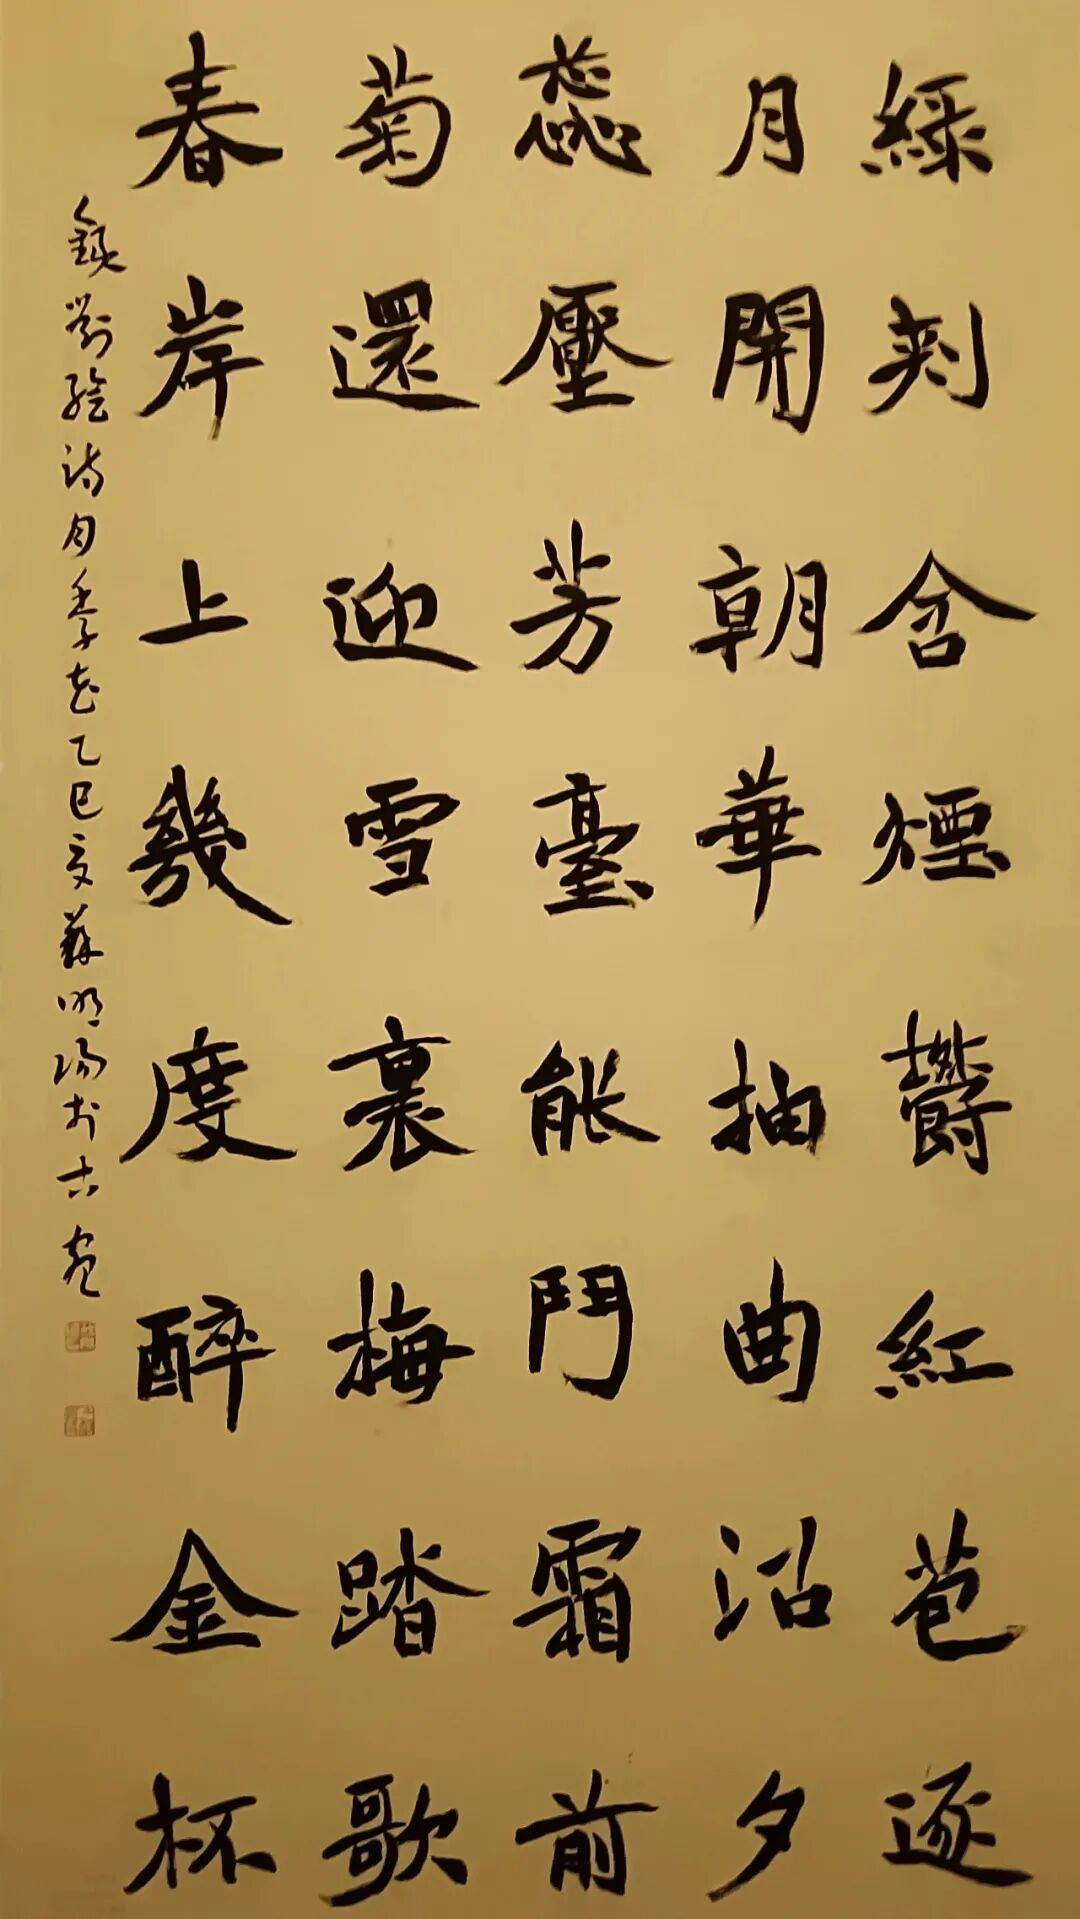 綠刺含煙鬱紅苞逐
月開朝華抽曲沼夕
蕊壓芳臺能鬥霜前
菊還迎雪裏梅踏歌
春岸上幾度醉金杯
錄劉繪詩月季花乙巳夏蘇明陽於古宛